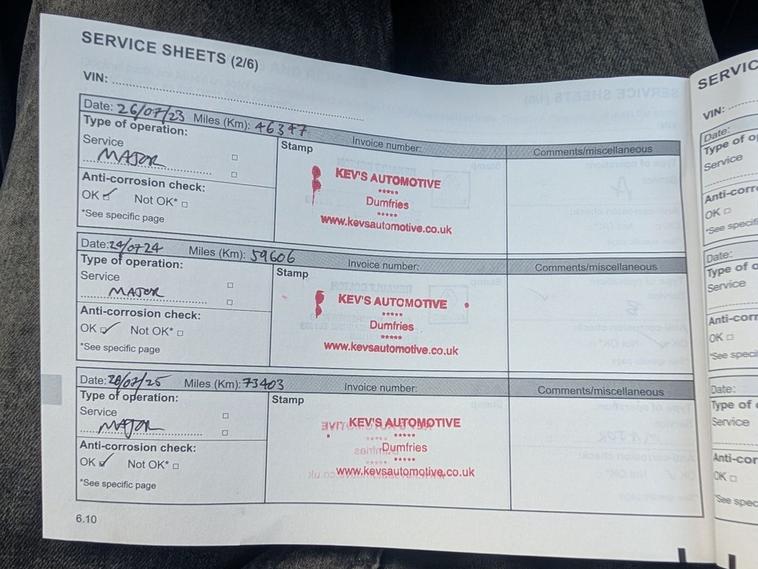 SERVICE SHEETS (2/6)
VIN:
Date: 26/07/23 Miles (Km): 46347 Invoice number:
Type of operation:
Service
MAJOR
Anti-corrosion check:
OK Not OK*
*See specific page
Stamp
KEV'S AUTOMOTIVE
*****
Dumfries
*****
www.kevsautomotive.co.uk
Comments/miscellaneous
Date: 24/07/24 Miles (Km): 59606 Invoice number:
Type of operation:
Service
MAJOR
Anti-corrosion check:
OK Not OK*
*See specific page
Stamp
KEV'S AUTOMOTIVE
*****
Dumfries
*****
www.kevsautomotive.co.uk
Comments/miscellaneous
Date: 28/07/25 Miles (Km): 73403 Invoice number:
Type of operation:
Service
MAJOR
Anti-corrosion check:
OK Not OK*
*See specific page
Stamp
KEV'S AUTOMOTIVE
*****
Dumfries
*****
www.kevsautomotive.co.uk
Comments/miscellaneous
6.10
SERVIC
VIN:
Date:
Type of o
Service
Anti-corr
OK
*See specif
Date:
Type of o
Service
Anti-corr
OK
*See speci
Date:
Type of
Service
Anti-cor
OK
*See spec